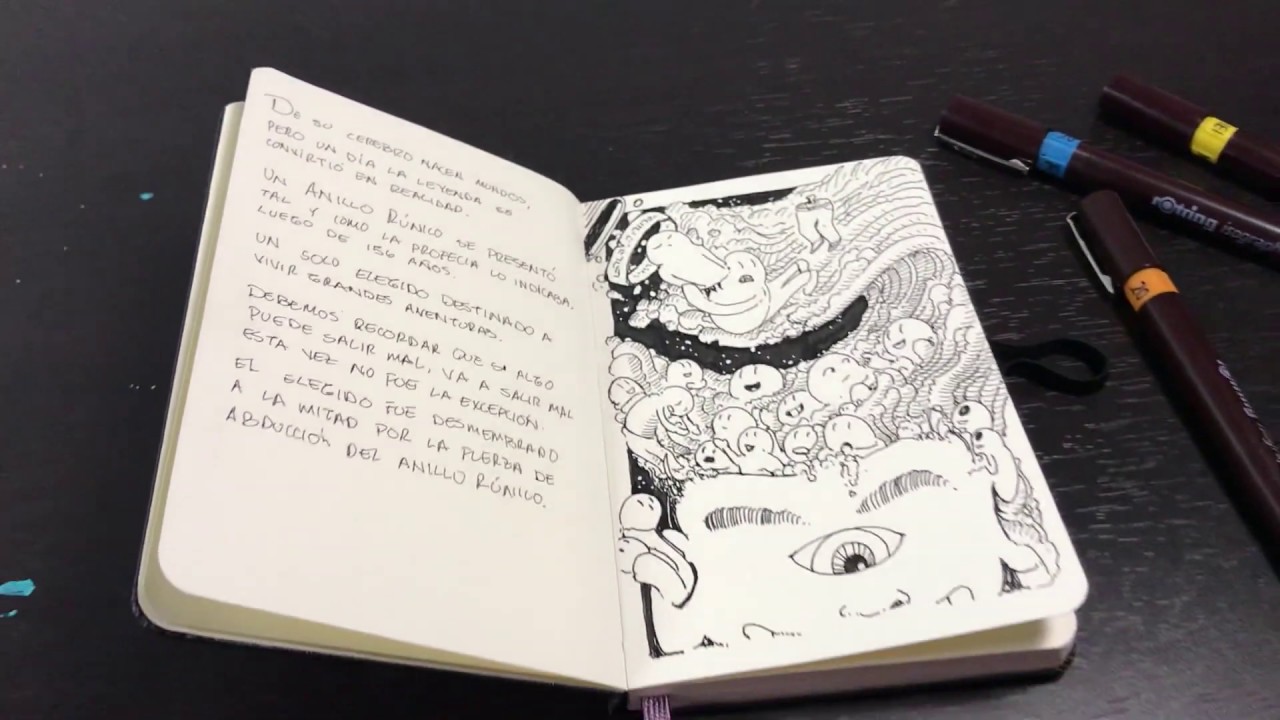 DE SU CEREBRO NACEN MUNDOS,
PERO UN DÍA LA LEYENDA SE
CONVIRTIÓ EN REALIDAD.
UN ANILLO RÚNICO SE PRESENTÓ
TAL Y COMO LA PROFECÍA LO INDICABA,
LUEGO DE 156 AÑOS.
UN SOLO ELEGIDO DESTINADO A
VIVIR GRANDES AVENTURAS.
DEBEMOS RECORDAR QUE SI ALGO
PUEDE SALIR MAL, VA A SALIR MAL
ESTA VEZ NO FUE LA EXCEPCIÓN.
EL ELEGIDO FUE DESMEMBRADO
A LA MITAD POR LA FUERZA DE
ABDUCCIÓN DEL ANILLO RÚNICO.
rotring isograph